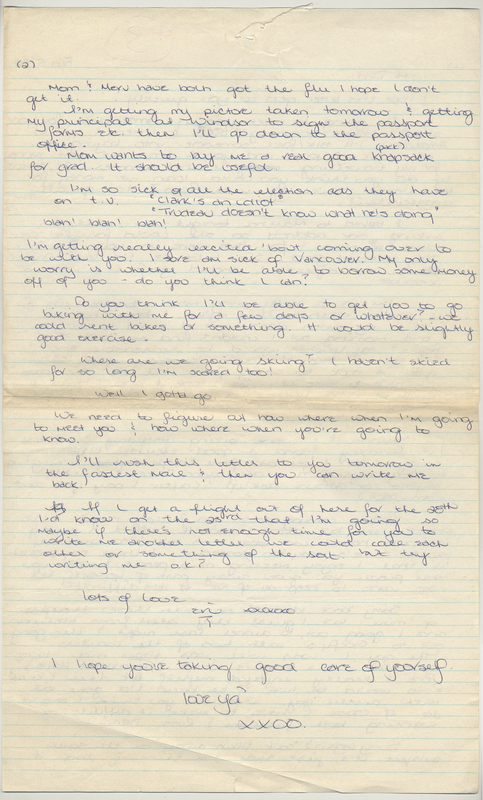 (2)
Mom & Merv have both got the flu I hope I don't
get it.
I'm getting my picture taken tomorrow & getting
my principal at Windsor to sign the passport
forms etc. then I'll go down to the passport
office.
(pack)
Mom wants to buy me a real good knapsack
for grad. It should be useful.
I'm so sick of all the election ads they have
on t.v. "Clark's an idiot"
"Trudeau doesn't know what he's doing"
blah! blah! blah!
I'm getting really excited 'bout coming over to
be with you. I sure am sick of Vancouver. My only
worry is whether I'll be able to borrow some money
off of you - do you think I can?
Do you think I'll be able to get you to go
biking with me for a few days or whatever? - we
could rent bikes or something. It would be slightly
good exercise.
Where are we going skiing? I haven't skied
for so long I'm scared too!
Well I gotta go
We need to figure out how where when I'm going
to meet you & how where when you're going to
know.
I'll rush this letter to you tomorrow in
the fastest mail & then you can write me
back.
If I get a flight out of here for the 28th
I'd know on the 23rd that I'm going so
maybe if there's not enough time for you to
write me another letter we could call each
other or something of the sort. but try
writing me o.k?
lots of love
xoxoxo
I hope you're taking good care of yourself
love ya
XXOO.